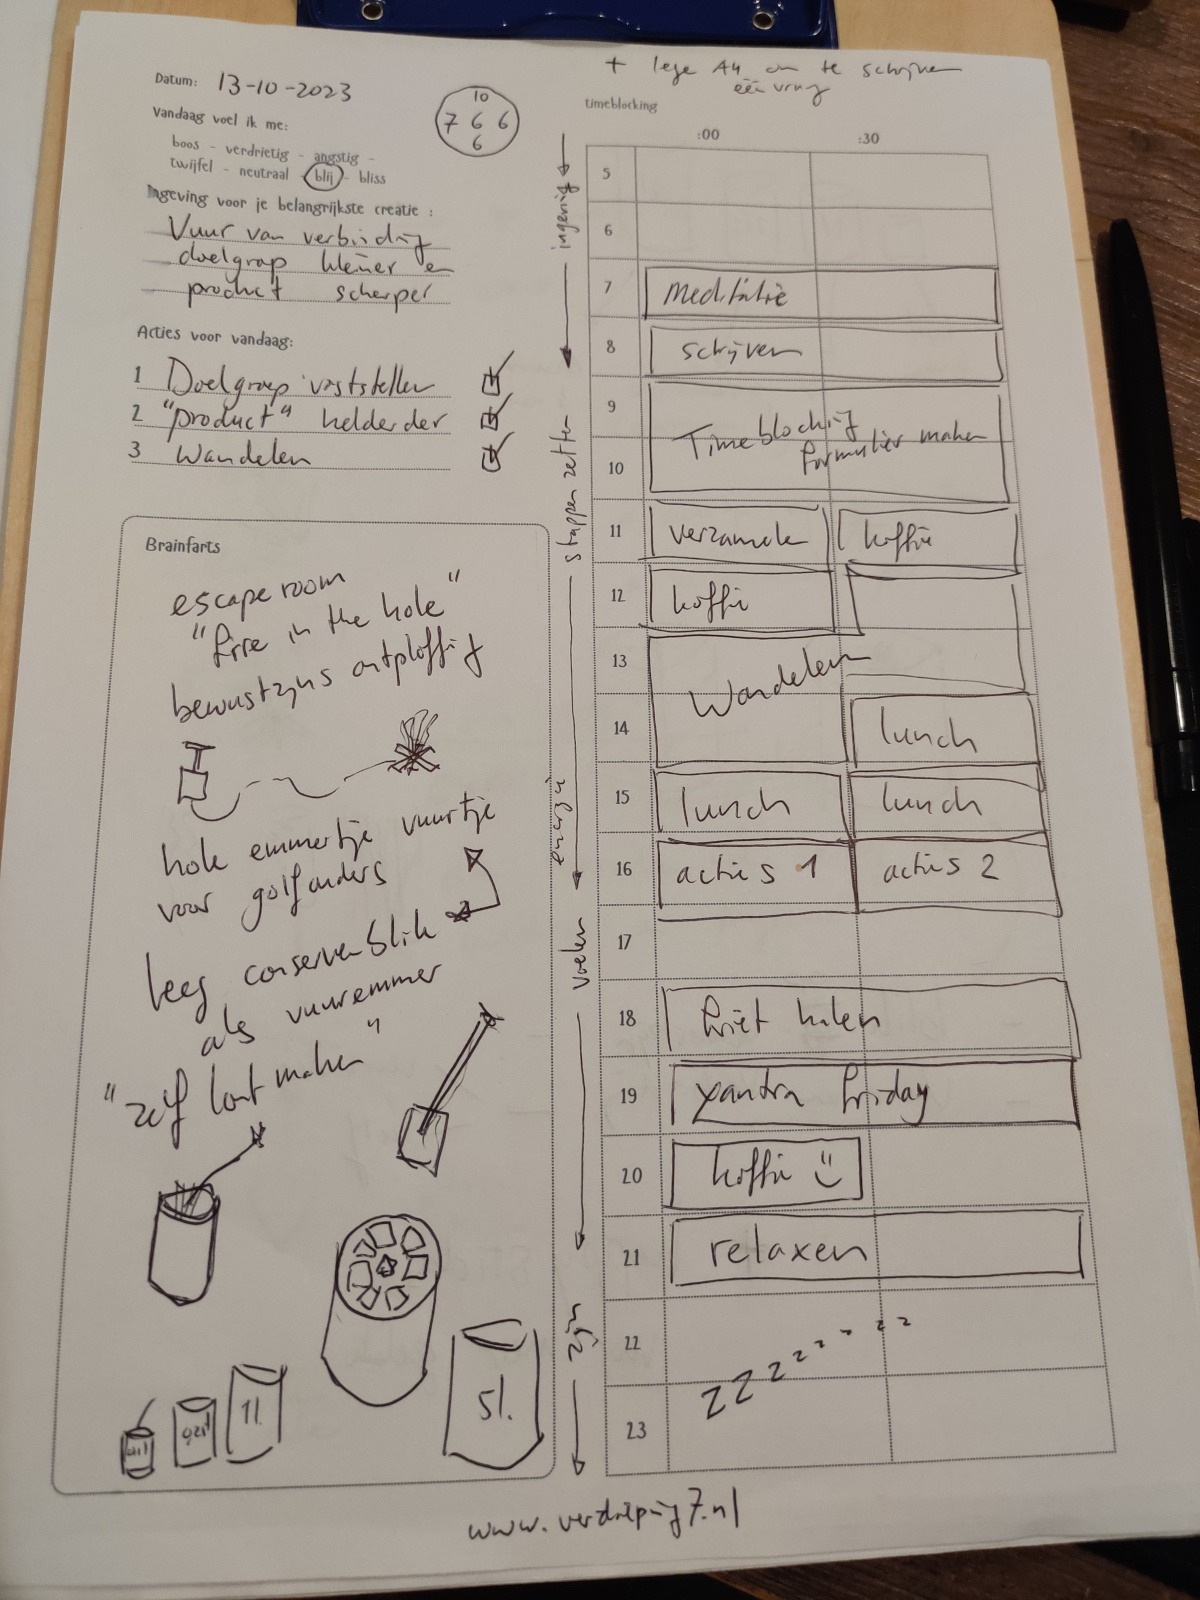 + lege A4 om te schrijven
één vraag
Datum: 13-10-2023
10
7 6 6
6
Vandaag voel ik me:
boos - verdrietig - angstig -
twijfel - neutraal - blij - bliss
Ingeving voor je belangrijkste creatie :
Vuur van verbinding
doelgroep kleiner en
product scherper
Acties voor vandaag:
1 Doelgroep vaststellen
2 "product" helderder
3 Wandelen
Brainfarts
escape room
"fire in the hole"
bewustzijns ontploffing
hole emmertje vuurtje
voor golfanders
leeg conservenblik
als vuuremmer
"zelf lont maken"
1l.
5l.
ingeving
stappen zetten
energie
voelen
zijn
timeblocking
:00 :30
5
6
7 meditatie
8 schrijven
9 Timeblocking
formulier maken
10
11 verzamelen koffie
12 koffie
13 Wandelen
14 lunch
15 lunch lunch
16 acties 1 acties 2
17
18 friet halen
19 xandra friday
20 koffie
21 relaxen
22
zzzzzzzz
23
www.verdieping7.nl